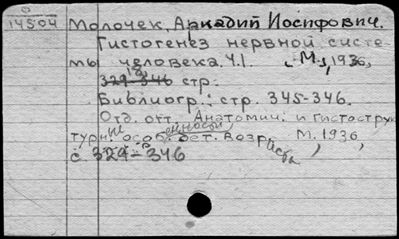 14504
Молочек, Аркадий Иосифович.
Гистогенез нервной систе-
мы человека, Ч.1. М., 1936,
18, стр.
Библиогр.: стр. 345-346.
Отд. отт. Анатомич. и гистострук
турные особенности дет. возраста, М. 1936,
с 329-346